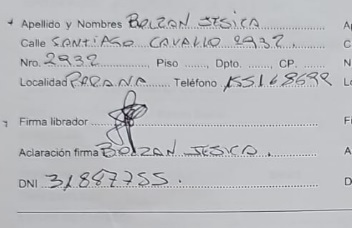 Apellido y Nombres BOLZAN JESICA
Calle SANTIAGO CAVALLO 2932
Nro. 2932 Piso ........, Dpto. ........, CP. ........
Localidad PARANA Teléfono 155168698
Firma librador
Aclaración firma BOLZAN JESICA.
DNI 31847755.